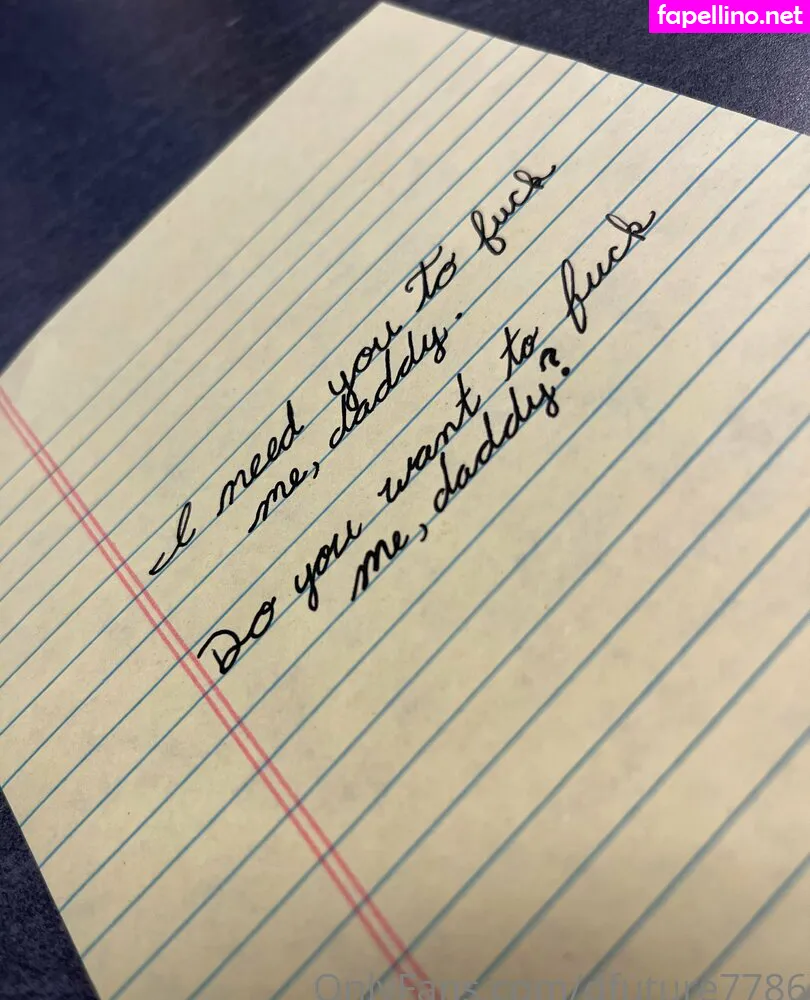 fapellino.net
I need you to fuck
me, daddy.
Do you want to fuck
me, daddy?
OnlyFans.com/dfuture7786